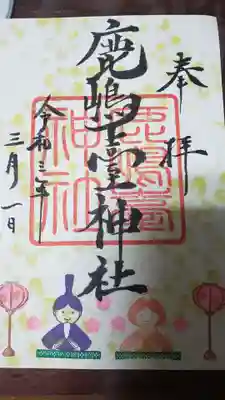 奉拝
鹿嶋臺神社
鹿嶋臺
神社
令和三年
三月一日